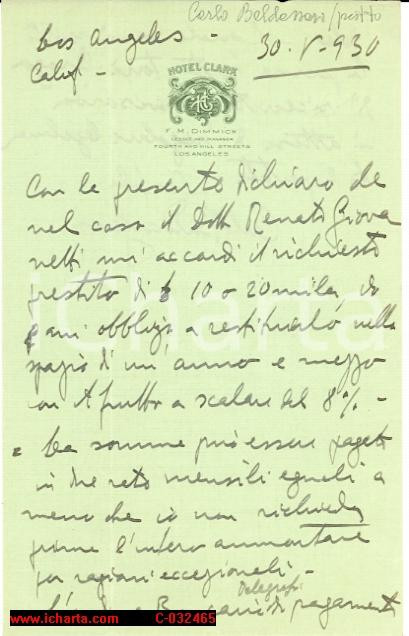 Carlo Baldassari / pitto
Los Angeles -
Calif -
30.V-930
HOTEL CLARK
F. M. DIMMICK
LESSEE AND MANAGER
FOURTH AND HILL STREETS
LOS ANGELES
Con le presente dichiaro che
nel caso il Dott Renato Giova
netti mi accordi il richiesto
prestito di $ 10 o 20 mila io
mi obbligo a restituirlo nello
spazio di un anno e mezzo
con frutto a scalare del 8% -
La somma può essere pagata
in rate mensili eguali a
meno che io non richieda
l'intero ammontare
per ragioni eccezionali -
Telegrafi
Bancari di pagamenti
iCharta
www.icharta.com C-032465